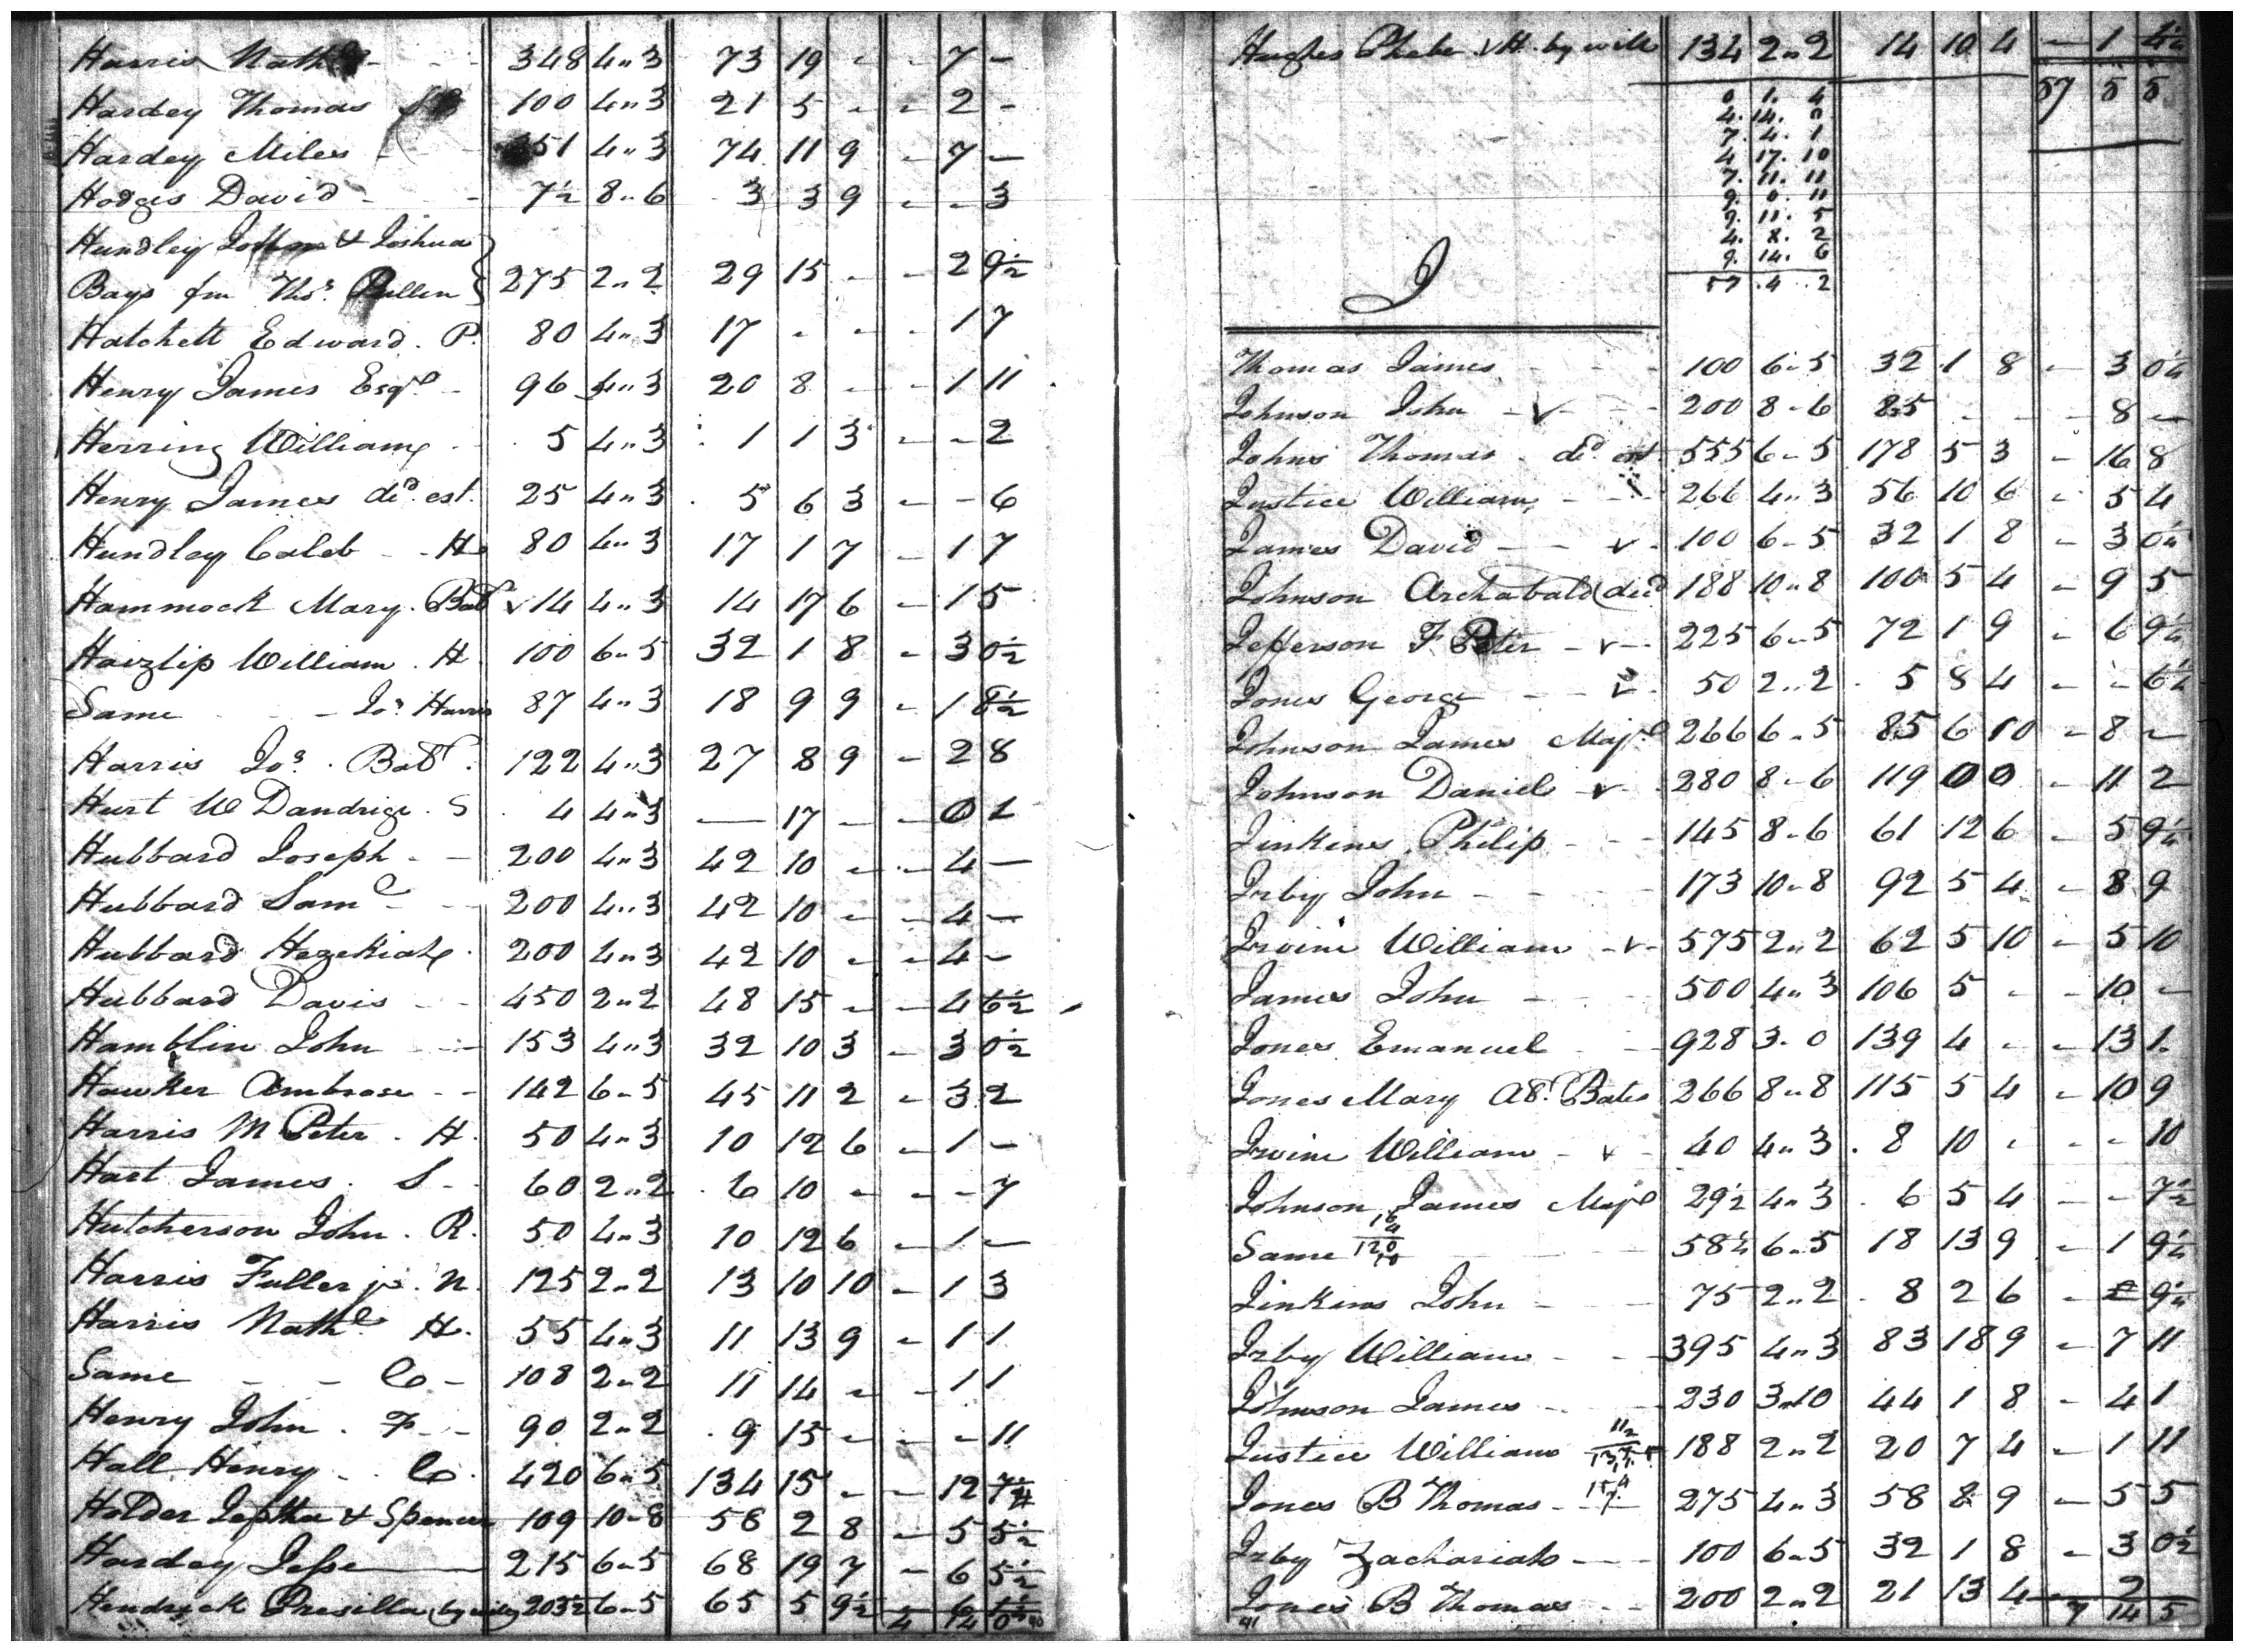 Harris Nathl - - 348 4"3 73 19 - - 7 -
Hardey Thomas 100 4"3 21 5 - - 2 -
Hardey Miles - - 351 4"3 74 11 9 - 7 -
Hodges David - - 7½ 8"6 3 3 9 - - 3
Hundley John & Joshua
Bays fm Thos. Pullen 275 2"2 29 15 - - 2 9½
Hatchett Edward. P. 80 4"3 17 - - - 1 7
Henry James Esqr - 96 4"3 20 8 - - 1 11
Herring William - 5 4"3 1 1 3 - - 2
Henry James decd. est. 25 4"3 5 6 3 - - 6
Hundley Caleb - H 80 4"3 17 1 7 - 1 7
Hammock Mary. Batt v 14 4"3 14 17 6 - 1 5
Haizlip William. H 100 6"5 32 1 8 - 3 0½
Same - - Jos Harris 87 4"3 18 9 9 - 1 8½
Harris Jos. Batt. 122 4"3 27 8 9 - 2 8
Hurt W Dandrige. S 4 4"3 — 17 - - 0 1
Hubbard Joseph - - 200 4"3 42 10 - - 4 -
Hubbard Saml - - 200 4"3 42 10 - - 4 -
Hubbard Hezekiah. 200 4"3 42 10 - - 4 -
Hubbard Davis - - 450 2"2 48 15 - - 4 6½
Hamblin John - - 153 4"3 32 10 3 - 3 0½
Hawker Ambrose - - 142 6"5 45 11 2 - 3 2
Harris M Peter. H. 50 4"3 10 12 6 - 1 -
Hart James. S - 60 2"2 6 10 - - - 7
Hutcherson John. R. 50 4"3 10 12 6 - 1 -
Harris Fuller jr. N. 125 2"2 13 10 10 - 1 3
Harris Nathl H. 55 4"3 11 13 9 - 1 1
Same - - Co - 108 2"2 11 14 - - 1 1
Henry John. F - - 90 2"2 9 15 - - - 11
Hall Henry - Co. 420 6"5 134 15 - - 12 7¼
Holder Jeptha & Spencer 109 10"8 58 2 8 - 5 5½
Hardey Jesse 215 6"5 68 19 7 - 6 5½
Hendrick Presilla (by will) 203½ 6"5 65 5 9½ - 6
4 14 0 40
Hughes Phebe v H. by will 134 2"2 14 10 4 - 1 4½
57 5 5
0. 1. 4
4. 14. 0
7. 4. 1
4 17. 10
7. 11. 11
9. 0. 11
9. 11. 5
4. 8. 2
9. 14. 6
57. 4. 2
J
Thomas James - - 100 6"5 32 1 8 - 3 0¼
Johnson John - v - - 200 8"6 85 - - - 8 -
Johns Thomas. decd est 555 6"5 178 5 3 - 16 8
Justice William - - 266 4"3 56 10 6 - 5 4
James David - - v - 100 6"5 32 1 8 - 3 0¼
Johnson Archabald (decd 188 10"8 100 5 4 - 9 5
Jefferson F Peter - v - 225 6"5 72 1 9 - 6 9¼
Jones George - - v - 50 2"2 5 8 4 - - 6¼
Johnson James Majr 266 6"5 85 6 10 - 8 -
Johnson Daniel - v - 280 8"6 119 0 0 - 11 2
Jinkins Philip - - 145 8"6 61 12 6 - 5 9¼
Irby John - - 173 10"8 92 5 4 - 8 9
Irvine William - v - 575 2"2 62 5 10 - 5 10
James John - - 500 4"3 106 5 - - 10 -
Jones Emanuel - - 928 3"0 139 4 - - 13 1
Jones Mary At. Bates 266 8"8 115 5 4 - 10 9
Irvine William - v - 40 4"3 8 10 - - - 10
Johnson James Majr 29½ 4"3 6 5 4 - - 7½
Same - - 58¼ 6"5 18 13 9 - 1 9¼
Jinkins John - - 75 2"2 8 2 6 - 9¼
Irby William - - 395 4"3 83 18 9 - 7 11
Johnson James - - 230 3"10 44 1 8 - 4 1
Justice William 188 2"2 20 7 4 - 1 11
Jones B Thomas - 275 4"3 58 8 9 - 5 5
Irby Zachariah - - 100 6"5 32 1 8 - 3 0½
Jones B Thomas - - 200 2"2 21 13 4 - 2
41 7 14 5